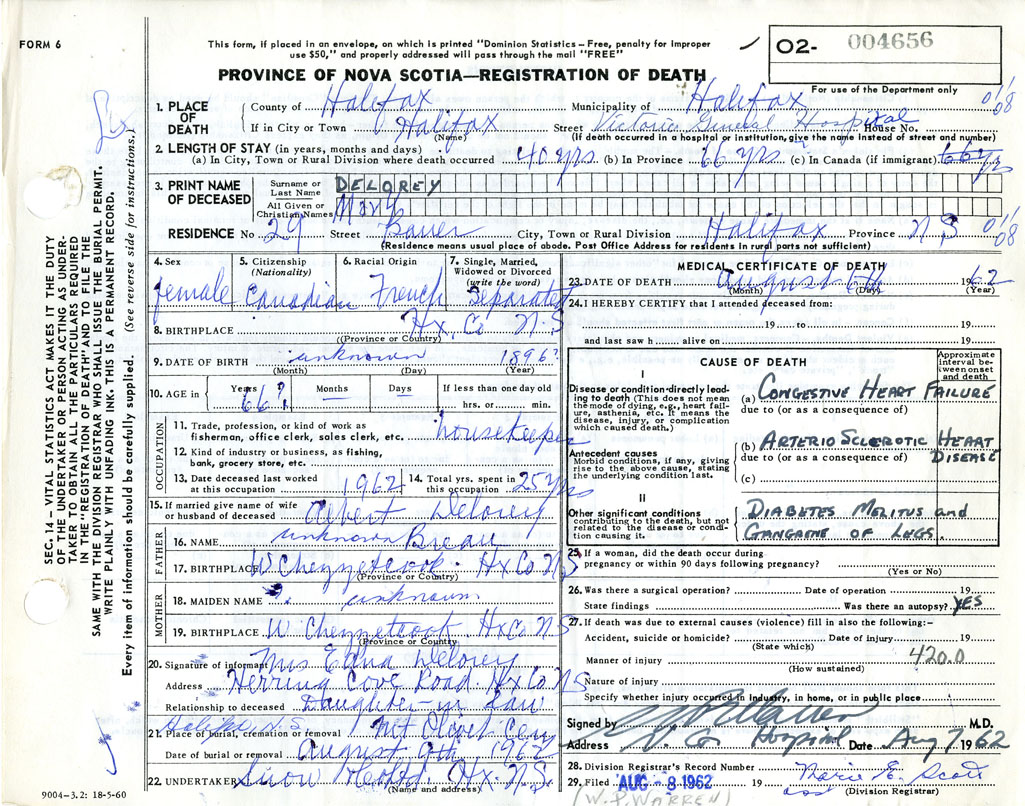 FORM 6
This form, if placed in an envelope, on which is printed "Dominion Statistics – Free, penalty for improper
use $50," and properly addressed will pass through the mail "FREE"
O2- 004656
PROVINCE OF NOVA SCOTIA—REGISTRATION OF DEATH
For use of the Department only
1. PLACE OF DEATH
County of Halifax Municipality of Halifax
If in City or Town Halifax Street Victoria General Hospital House No.
(Name) (If death occurred in a hospital or institution, give the name instead of street and number)
2. LENGTH OF STAY (in years, months and days)
(a) In City, Town or Rural Division where death occurred 40 yrs (b) In Province 66 yrs (c) In Canada (if immigrant) 66 yrs
3. PRINT NAME OF DECEASED
Surname or Last Name DELOREY
All Given or Christian Names Mary
RESIDENCE No. 29 Street Bauer City, Town or Rural Division Halifax Province N.S
(Residence means usual place of abode. Post Office Address for residents in rural parts not sufficient)
4. Sex female
5. Citizenship (Nationality) Canadian
6. Racial Origin French
7. Single, Married, Widowed or Divorced (write the word) Separated
8. BIRTHPLACE Hx. Co N.S
(Province or Country)
9. DATE OF BIRTH unknown 1896?
(Month) (Day) (Year)
10. AGE in Years 66? Months Days If less than one day old
hrs. or min.
OCCUPATION
11. Trade, profession, or kind of work as
fisherman, office clerk, sales clerk, etc. housekeeper
12. Kind of industry or business, as fishing,
bank, grocery store, etc.
13. Date deceased last worked
at this occupation 1962
14. Total yrs. spent in
this occupation 25 yrs
15. If married give name of wife
or husband of deceased Albert Delorey
FATHER
16. NAME unknown Breau
17. BIRTHPLACE W Chezzetcook Hx Co N.S
(Province or Country)
MOTHER
18. MAIDEN NAME unknown
19. BIRTHPLACE W Chezzetcook Hx Co NS
(Province or Country)
20. Signature of informant Mrs Edna Delorey
Address Herring Cove Road Hx Co NS
Relationship to deceased Daughter-in Law
Halifax N.S
21. Place of burial, cremation or removal Mt Olivet Cem
Date of burial or removal August 9th 1962
22. UNDERTAKER Snow & Co Ltd. Hx. N.S.
(Name and address)
MEDICAL CERTIFICATE OF DEATH
23. DATE OF DEATH August 6th 1962
(Month) (Day) (Year)
24. I HEREBY CERTIFY that I attended deceased from:
19 to 19
and last saw h alive on 19
CAUSE OF DEATH
Approximate interval between onset and death
I
Disease or condition directly leading to death (This does not mean
the mode of dying, e.g., heart failure, asthenia, etc. It means the
disease, injury, or complication
which caused death.)
(a) CONGESTIVE HEART FAILURE
due to (or as a consequence of)
Antecedent causes
Morbid conditions, if any, giving
rise to the above cause, stating
the underlying condition last.
(b) ARTERIOSCLEROTIC HEART DISEASE
due to (or as a consequence of)
(c)
II
Other significant conditions
contributing to the death, but not
related to the disease or condition causing it.
DIABETES MELITUS and
GANGRINE OF LEGS
25. If a woman, did the death occur during
pregnancy or within 90 days following pregnancy?
(Yes or No)
26. Was there a surgical operation? Date of operation 19
State findings Was there an autopsy? YES
27. If death was due to external causes (violence) fill in also the following:-
Accident, suicide or homicide? Date of injury 19
(State which)
Manner of injury 420.0
(How sustained)
Nature of injury
Specify whether injury occurred in industry, in home, or in public place
Signed by M.D.
Address V. G. Hospital Date Aug 7 1962
28. Division Registrar's Record Number Marie E. Scott
29. Filed AUG -8 1962 19
(Division Registrar)
(W.P. WARREN)
SEC. 14 — VITAL STATISTICS ACT MAKES IT THE DUTY
OF THE UNDERTAKER OR PERSON ACTING AS UNDERTAKER TO OBTAIN ALL THE PARTICULARS REQUIRED
IN THE "REGISTRATION OF DEATH" AND TO FILE THE
SAME WITH THE DIVISION REGISTRAR WHO SHALL ISSUE THE BURIAL PERMIT.
WRITE PLAINLY WITH UNFADING INK. THIS IS A PERMANENT RECORD.
Every item of information should be carefully supplied. (See reverse side for instructions.)
9004-3.2: 18-5-60